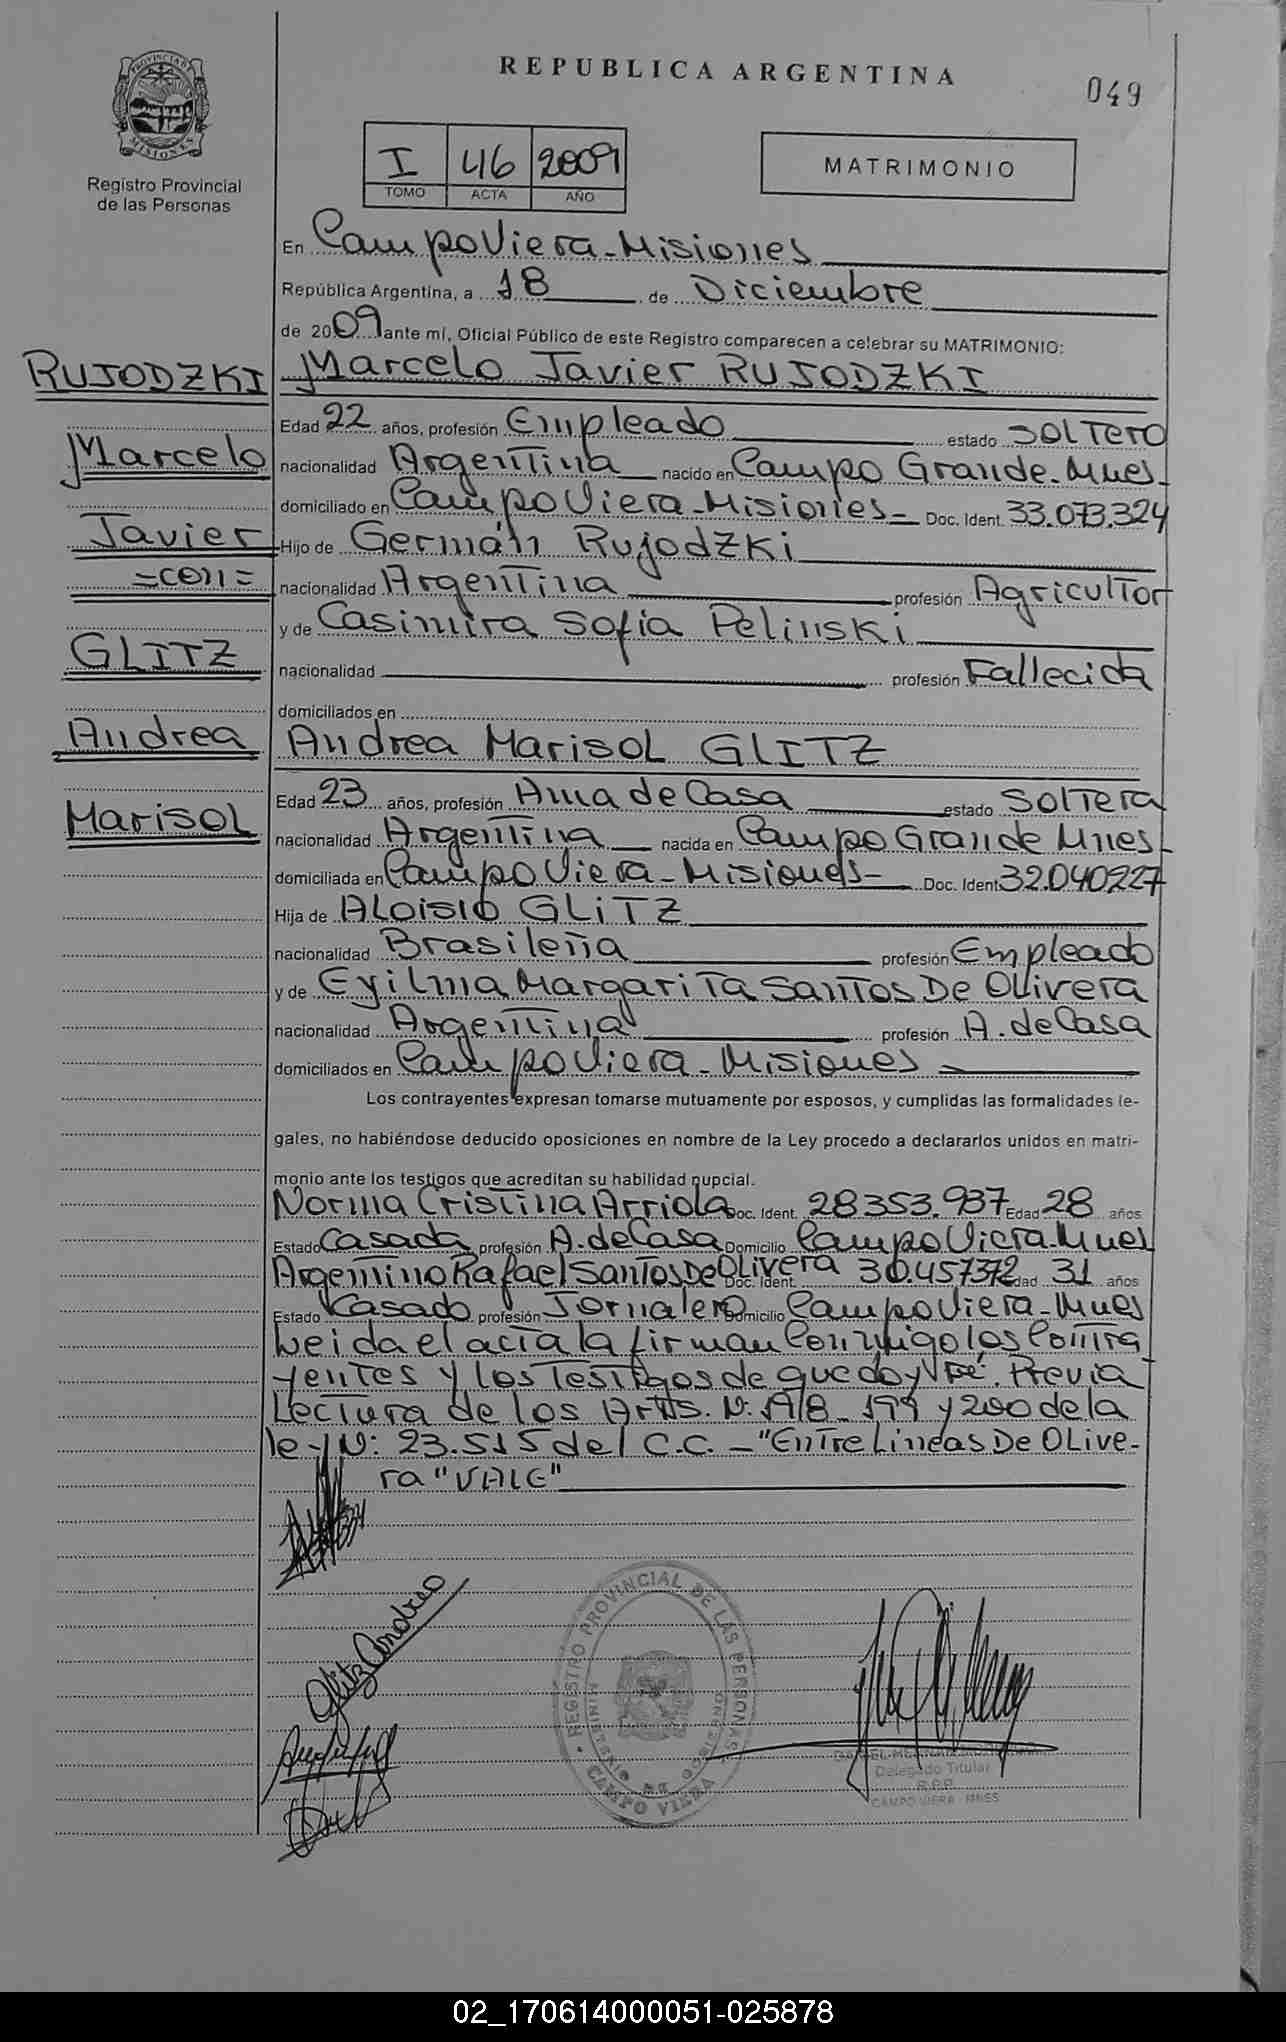 REPUBLICA ARGENTINA
049
PROVINCIA DE MISIONES
Registro Provincial
de las Personas
I 46 2009
TOMO ACTA AÑO
MATRIMONIO
En Campo Viera - Misiones
República Argentina, a 18 de Diciembre
de 2009 ante mí, Oficial Público de este Registro comparecen a celebrar su MATRIMONIO:
RUJODZKI Marcelo Javier RUJODZKI
Edad 22 años, profesión Empleado estado Soltero
Marcelo nacionalidad Argentina nacido en Campo Grande - Mnes -
domiciliado en Campo Viera - Misiones - Doc. Ident. 33.073.324
Javier Hijo de Germán Rujodzki
=con= nacionalidad Argentina profesión Agricultor
y de Casimira Sofia Pelinski
GLITZ nacionalidad profesión Fallecida
domiciliados en
Andrea Andrea Marisol GLITZ
Edad 23 años, profesión Ama de Casa estado Soltera
Marisol nacionalidad Argentina nacida en Campo Grande Mnes -
domiciliada en Campo Viera - Misiones - Doc. Ident. 32.040227
Hija de Aloisio GLITZ
nacionalidad Brasileña profesión Empleado
y de Eyilma Margarita Santos De Olivera
nacionalidad Argentina profesión A. de Casa
domiciliados en Campo Viera - Misiones
Los contrayentes expresan tomarse mutuamente por esposos, y cumplidas las formalidades le-
gales, no habiéndose deducido oposiciones en nombre de la Ley procedo a declararlos unidos en matri-
monio ante los testigos que acreditan su habilidad nupcial.
Norma Cristina Arriola Doc. Ident. 28353.937 Edad 28 años
Estado Casada profesión A. de Casa Domicilio Campo Viera Mnes
Argentino Rafael Santos De Olivera Doc. Ident. 30.457372 Edad 31 años
Estado Casado profesión Jornalero Domicilio Campo Viera - Mnes
Leida el acta la firman Conmigo los Contra
yentes y los Testigos de que doy Fé. Previa
Lectura de los Arts. N: 198 - 199 y 200 de la
ley N: 23.515 del C.C. - "Entre Lineas De Olive-
ra" VALE"
Glitz Andrea
REGISTRO PROVINCIAL DE LAS PERSONAS
MINISTERIO DE GOBIERNO
CAMPO VIERA
Delegado Titular
R.P.P.
CAMPO VIERA - MNES
02_170614000051-025878